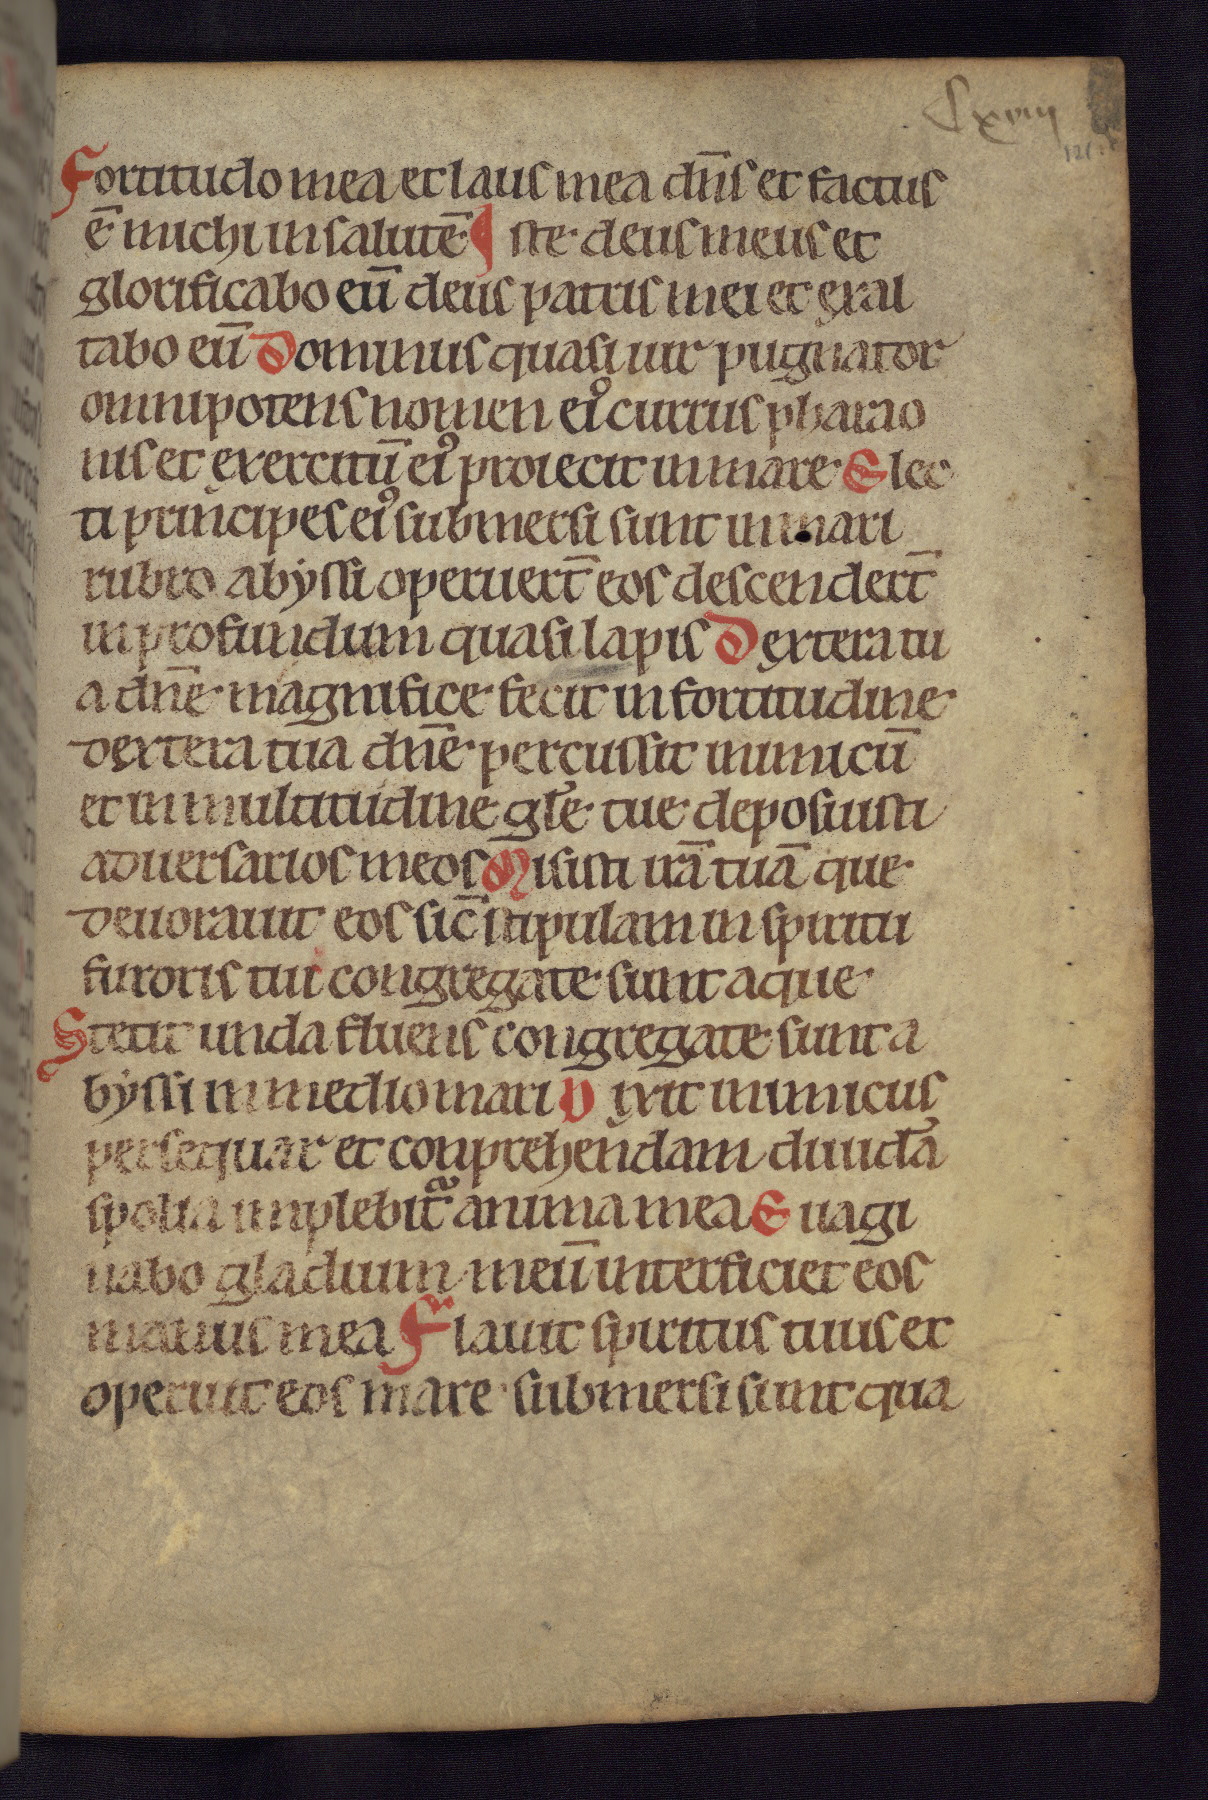 Cxviij
121
Fortitudo mea et laus mea dn̄s et factus
ē michi in salutē Iste deus meus et
glorificabo eū deus patris mei et exal
tabo eū Dominus quasi uir pugnator
omnipotens nomen eiꝰ currus pharao
nis et exercitū eiꝰ proiecit in mare Elec
ti principes eiꝰ submersi sunt in mari
rubro abyssi operuert̄ eos descendert̄
in profundum quasi lapis Dextera tu
a dn̄e magnifice fecit in fortitudine
dextera tua dn̄e percussit inimicū
et in multitudine gl̄e tue deposuisti
aduersarios meos Misisti irā tuā que
deuorauit eos sic̄ stipulam in spiritu
furoris tui congregate sunt aque
Stetit unda fluens congregate sunt a
byssi in medio mari Dixit inimicus
persequar et conprehendam diuidā
spolia inplebit᷑ anima mea Euagi
nabo gladium meū interficiet eos
manus mea Flauit spiritus tuus et
operuit eos mare submersi sunt qua